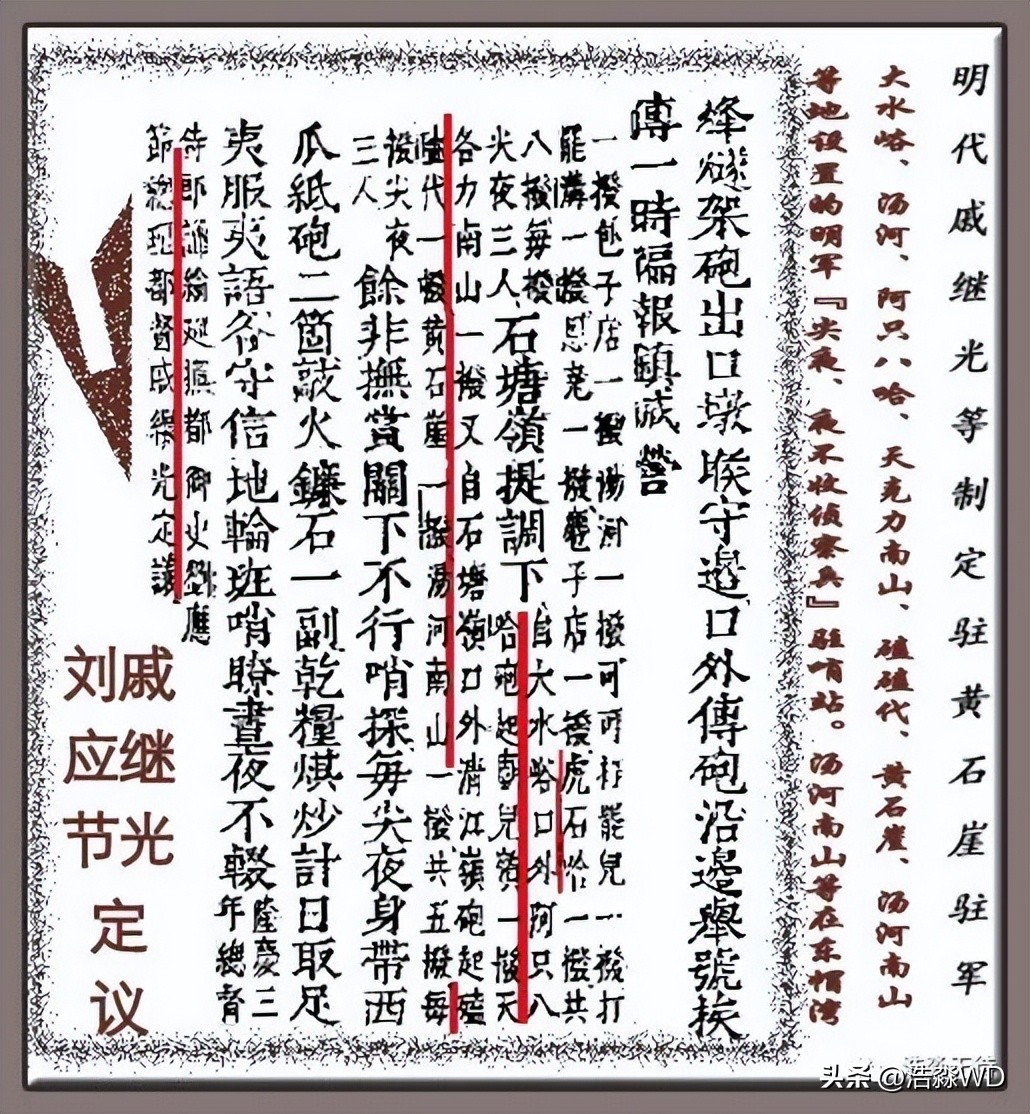 明代戚继光等制定驻黄石崖驻军
大水峪、汤河、阿只八哈、天克力南山、磕磕代、黄石崖、汤河南山
等地设置的明军『尖夜、夜不收侦察兵』驻哨站。汤河南山等在东帽湾
烽燧架砲出口墩聨守邊口外傳砲沿邊舉號挨
傳一時隔報鎮滅營
一撥飽子店一撥湯河一撥可可打能兒一撥打
罷溝一撥恩尭一撥龜子店一撥虎石哈一撥共
八撥每撥
尖夜三人
石塘嶺提調下
自大水峪口外阿只八
哈砲起彭兒嶺一撥天
各力南山一撥又自石塘嶺口外消江嶺砲起磕
磕代一撥黄石崖一撥湯河南山一撥共五撥每
撥尖夜
三人
餘非撫賞關下不行哨探每尖夜身帶西
瓜紙砲二箇敲火鐮石一副乾糧煤炒計日取足
夷服夷語各守信地輪班哨瞭晝夜不輟
隆慶三
年總督
侍郎譚綸廵撫都御史劉應
節總理都督戚繼光定議
戚继光
刘应节
定议
头条 @浩淼WD